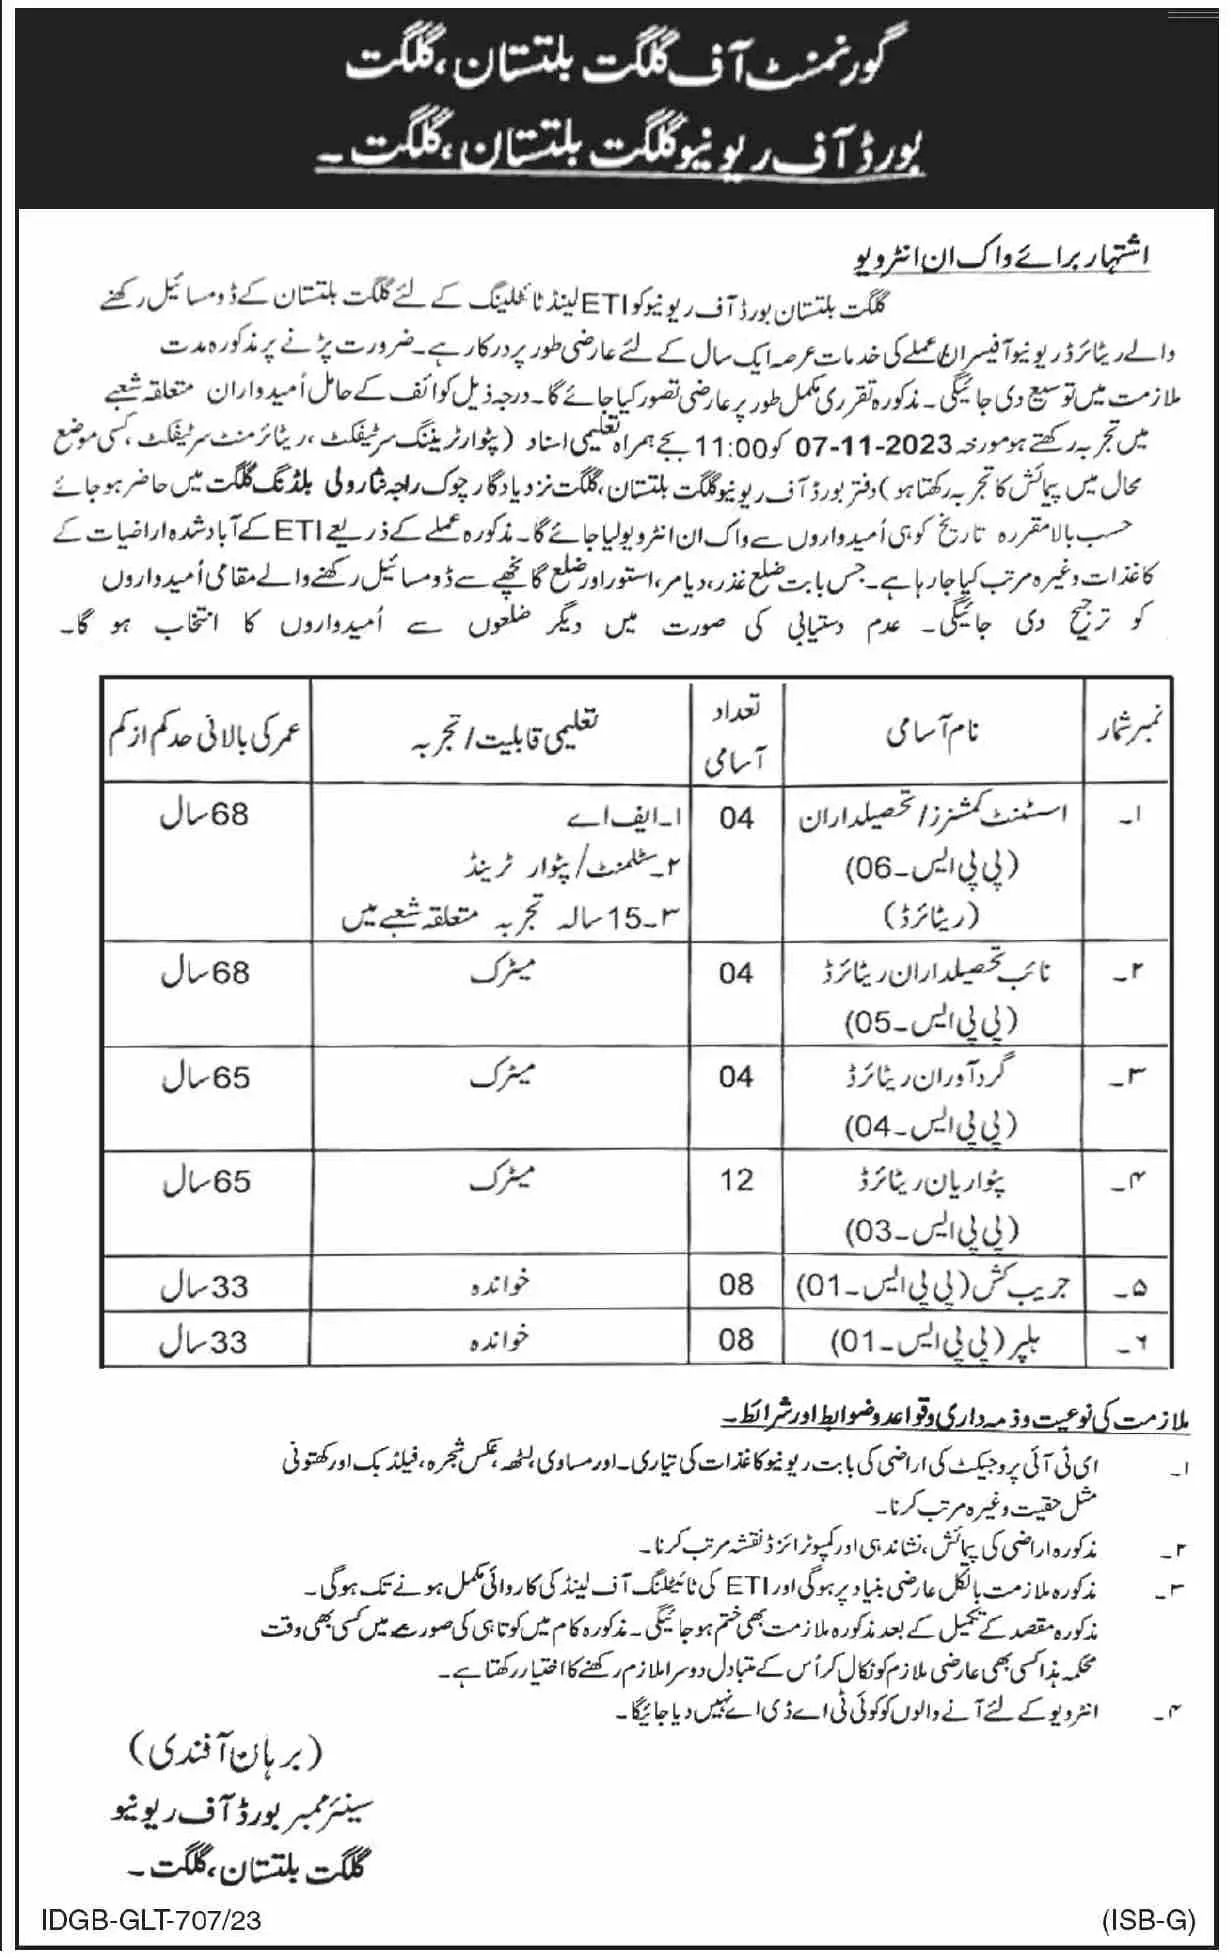 گورنمنٹ آف گلگت بلتستان، گلگت
بورڈ آف ریونیو گلگت بلتستان، گلگت۔
اشتہار برائے واک ان انٹرویو
گلگت بلتستان بورڈ آف ریونیو کو ETI لینڈ ٹائٹلینگ کے لئے گلگت بلتستان کے ڈومسائیل رکھنے
والے ریٹائرڈ ریونیو آفیسران/عملے کی خدمات عرصہ ایک سال کے لئے عارضی طور پر درکار ہے۔ ضرورت پڑنے پر مذکورہ مدت
ملازمت میں توسیع دی جائیگی۔ مذکورہ تقرری مکمل طور پر عارضی تصور کیا جائے گا۔ درجہ ذیل کوائف کے حامل اُمیدواران متعلقہ شعبے
میں تجربہ رکھتے ہو مورخہ 07-11-2023 کو 11:00 بجے ہمراہ تعلیمی اسناد (پٹوار ٹریننگ سرٹیفکٹ، ریٹائرمنٹ سرٹیفکٹ، کسی موضع
محال میں پیمائش کا تجربہ رکھتا ہو) دفتر بورڈ آف ریونیو گلگت بلتستان، گلگت نزد یادگار چوک راجہ نثار ولی بلڈنگ گلگت میں حاضر ہو جائے
حسب بالا مقررہ تاریخ کو ہی اُمیدواروں سے واک ان انٹرویو لیا جائے گا۔ مذکورہ عملے کے ذریعے ETI کے آباد شدہ اراضیات کے
کاغذات وغیرہ مرتب کیا جا رہا ہے۔ جس بابت ضلع غذر، دیامر، استور اور ضلع گانچھے سے ڈومسائیل رکھنے والے مقامی اُمیدواروں
کو ترجیح دی جائیگی۔ عدم دستیابی کی صورت میں دیگر ضلعوں سے اُمیدواروں کا انتخاب ہو گا۔
نمبر شمار | نام آسامی | تعداد آسامی | تعلیمی قابلیت/تجربہ | عمر کی بالائی حد کم از کم
۱۔ | اسسٹنٹ کمشنرز/تحصیلداران (پی پی ایس۔06) (ریٹائرڈ) | 04 | ۱۔ایف اے ۲۔سٹلمنٹ/پٹوار ٹرینڈ ۳۔15 سالہ تجربہ متعلقہ شعبے میں | 68 سال
۲۔ | نائب تحصیلداران ریٹائرڈ (پی پی ایس۔05) | 04 | میٹرک | 68 سال
۳۔ | گرد آوران ریٹائرڈ (پی پی ایس۔04) | 04 | میٹرک | 65 سال
۴۔ | پٹواریان ریٹائرڈ (پی پی ایس۔03) | 12 | میٹرک | 65 سال
۵۔ | جریب کش (پی پی ایس۔01) | 08 | خواندہ | 33 سال
۶۔ | ہلپر (پی پی ایس۔01) | 08 | خواندہ | 33 سال
ملازمت کی نوعیت و ذمہ داری و قواعد و ضوابط اور شرائط۔
۱۔ ای ٹی آئی پروجیکٹ کی اراضی کی بابت ریونیو کاغذات کی تیاری۔ اور مساوی، لٹھہ، عکس شجرہ، فیلڈ بک اور کھتونی
مثل حقیت وغیرہ مرتب کرنا۔
۲۔ مذکورہ اراضی کی پیمائش، نشاندہی اور کمپوٹرائزڈ نقشہ مرتب کرنا۔
۳۔ مذکورہ ملازمت بالکل عارضی بنیاد پر ہوگی اور ETI کی ٹائیٹلنگ آف لینڈ کی کاروائی مکمل ہونے تک ہوگی۔
مذکورہ مقصد کے تکمیل کے بعد مذکورہ ملازمت بھی ختم ہو جائیگی۔ مذکورہ کام میں کوتاہی کی صورت میں کسی بھی وقت
محکمہ ہذا کسی بھی عارضی ملازم کو نکال کر اُس کے متبادل دوسرا ملازم رکھنے کا اختیار رکھتا ہے۔
۴۔ انٹرویو کے لئے آنے والوں کو کوئی ٹی اے ڈی اے نہیں دیا جائیگا۔
(برہان آفندی)
سینئر ممبر بورڈ آف ریونیو
گلگت بلتستان، گلگت۔
IDGB-GLT-707/23
(ISB-G)